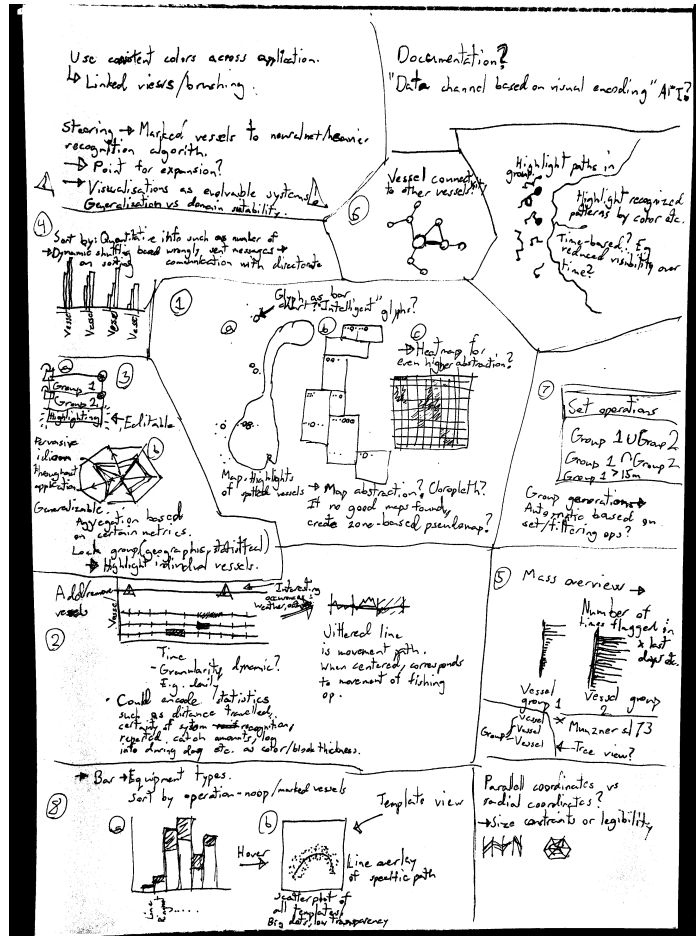 Use consistent colors across application.
↳ Linked views/brushing.
Documentation?
"Data channel based on visual encoding" API?
Steering → Marked vessels to neural net/heavier
recognition algorithm.
→ Point for expansion?
→ Visualisations as evolvable systems
Generalisation vs domain suitability.
Vessel connectivity
to other vessels?
6
Highlight paths in
group.
Highlight recognized
patterns by color etc.
Time-based? Eg
reduced visibility over
time?
4
Sort by: Quantitative info such as number of
wrongly sent messages →
communication with directorate
→ Dynamic shuffling based
on sorting
Vessel
Vessel
Vessel
Vessel
1
Glyph as bar
chart? "Intelligent" glyphs?
a
b
c
→ Heatmap for
even higher abstraction?
Map. Highlights
of spotted vessels
→ Map abstraction? Choropleth?
If no good maps found,
create zone-based pseudomap?
3
a
Group 1
Group 2
Highlighting
← Editable
b
Pervasive
idiom
throughout
application
Generalizable.
Aggregation based
on certain metrics.
Lock group (geographic, statistical)
→ Highlight individual vessels.
7
Set operations
Group 1 ∪ Group 2
Group 1 ∩ Group 2
Group 1 > 15m
Group generations →
Automatic based on
set/filtering ops?
2
Add/remove
vessels
Vessel
Interesting
occurrences
weather,
Time
- Granularity dynamic?
E.g. daily
• Could encode statistics
such as distance travelled,
certainty of system recognition,
reported catch amounts, log
info during day etc. as color/block thickness.
Jittered line
is movement path.
When centered, corresponds
to movement of fishing
op.
5
Mass overview →
Number of
times flagged in
x last
days etc.
Vessel
group 1
Vessel group
2
Group
Vessel
Vessel
Vessel
Munzner sl 73
← Tree view?
8
→ Bar → Equipment types.
Sort by operation-noop/marked vessels
a
Line
Hover
b
Template view
Line overlay
of specific path
Scatterplot of
all templates,
Big dots, low transparency
Parallel coordinates vs
radial coordinates?
→ Size constraints or legibility